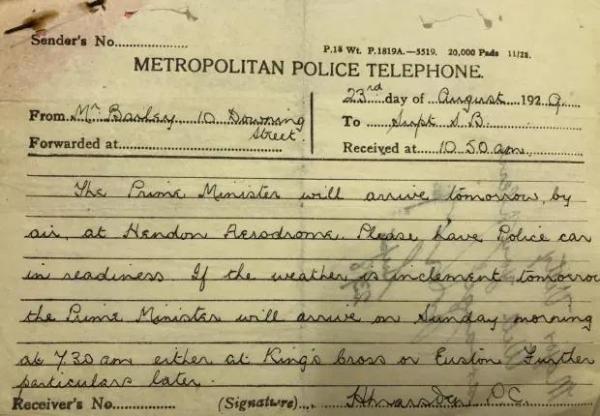 Sender's No.............
P.18 Wt. P.1819A.—5519. 20,000 Pads 11/28.
METROPOLITAN POLICE TELEPHONE.
From Mr Barley 10 Downing Street.
Forwarded at
23rd day of August 1929
To Supt S B
Received at 10 50 am
The Prime Minister will arrive tomorrow, by
air, at Hendon Aerodrome. Please have Police car
in readiness If the weather is inclement tomorrow
the Prime Minister will arrive on Sunday morning
at 7.30 am either at King's Cross or Euston Further
particulars later.
Receiver's No.............
(Signature) PC